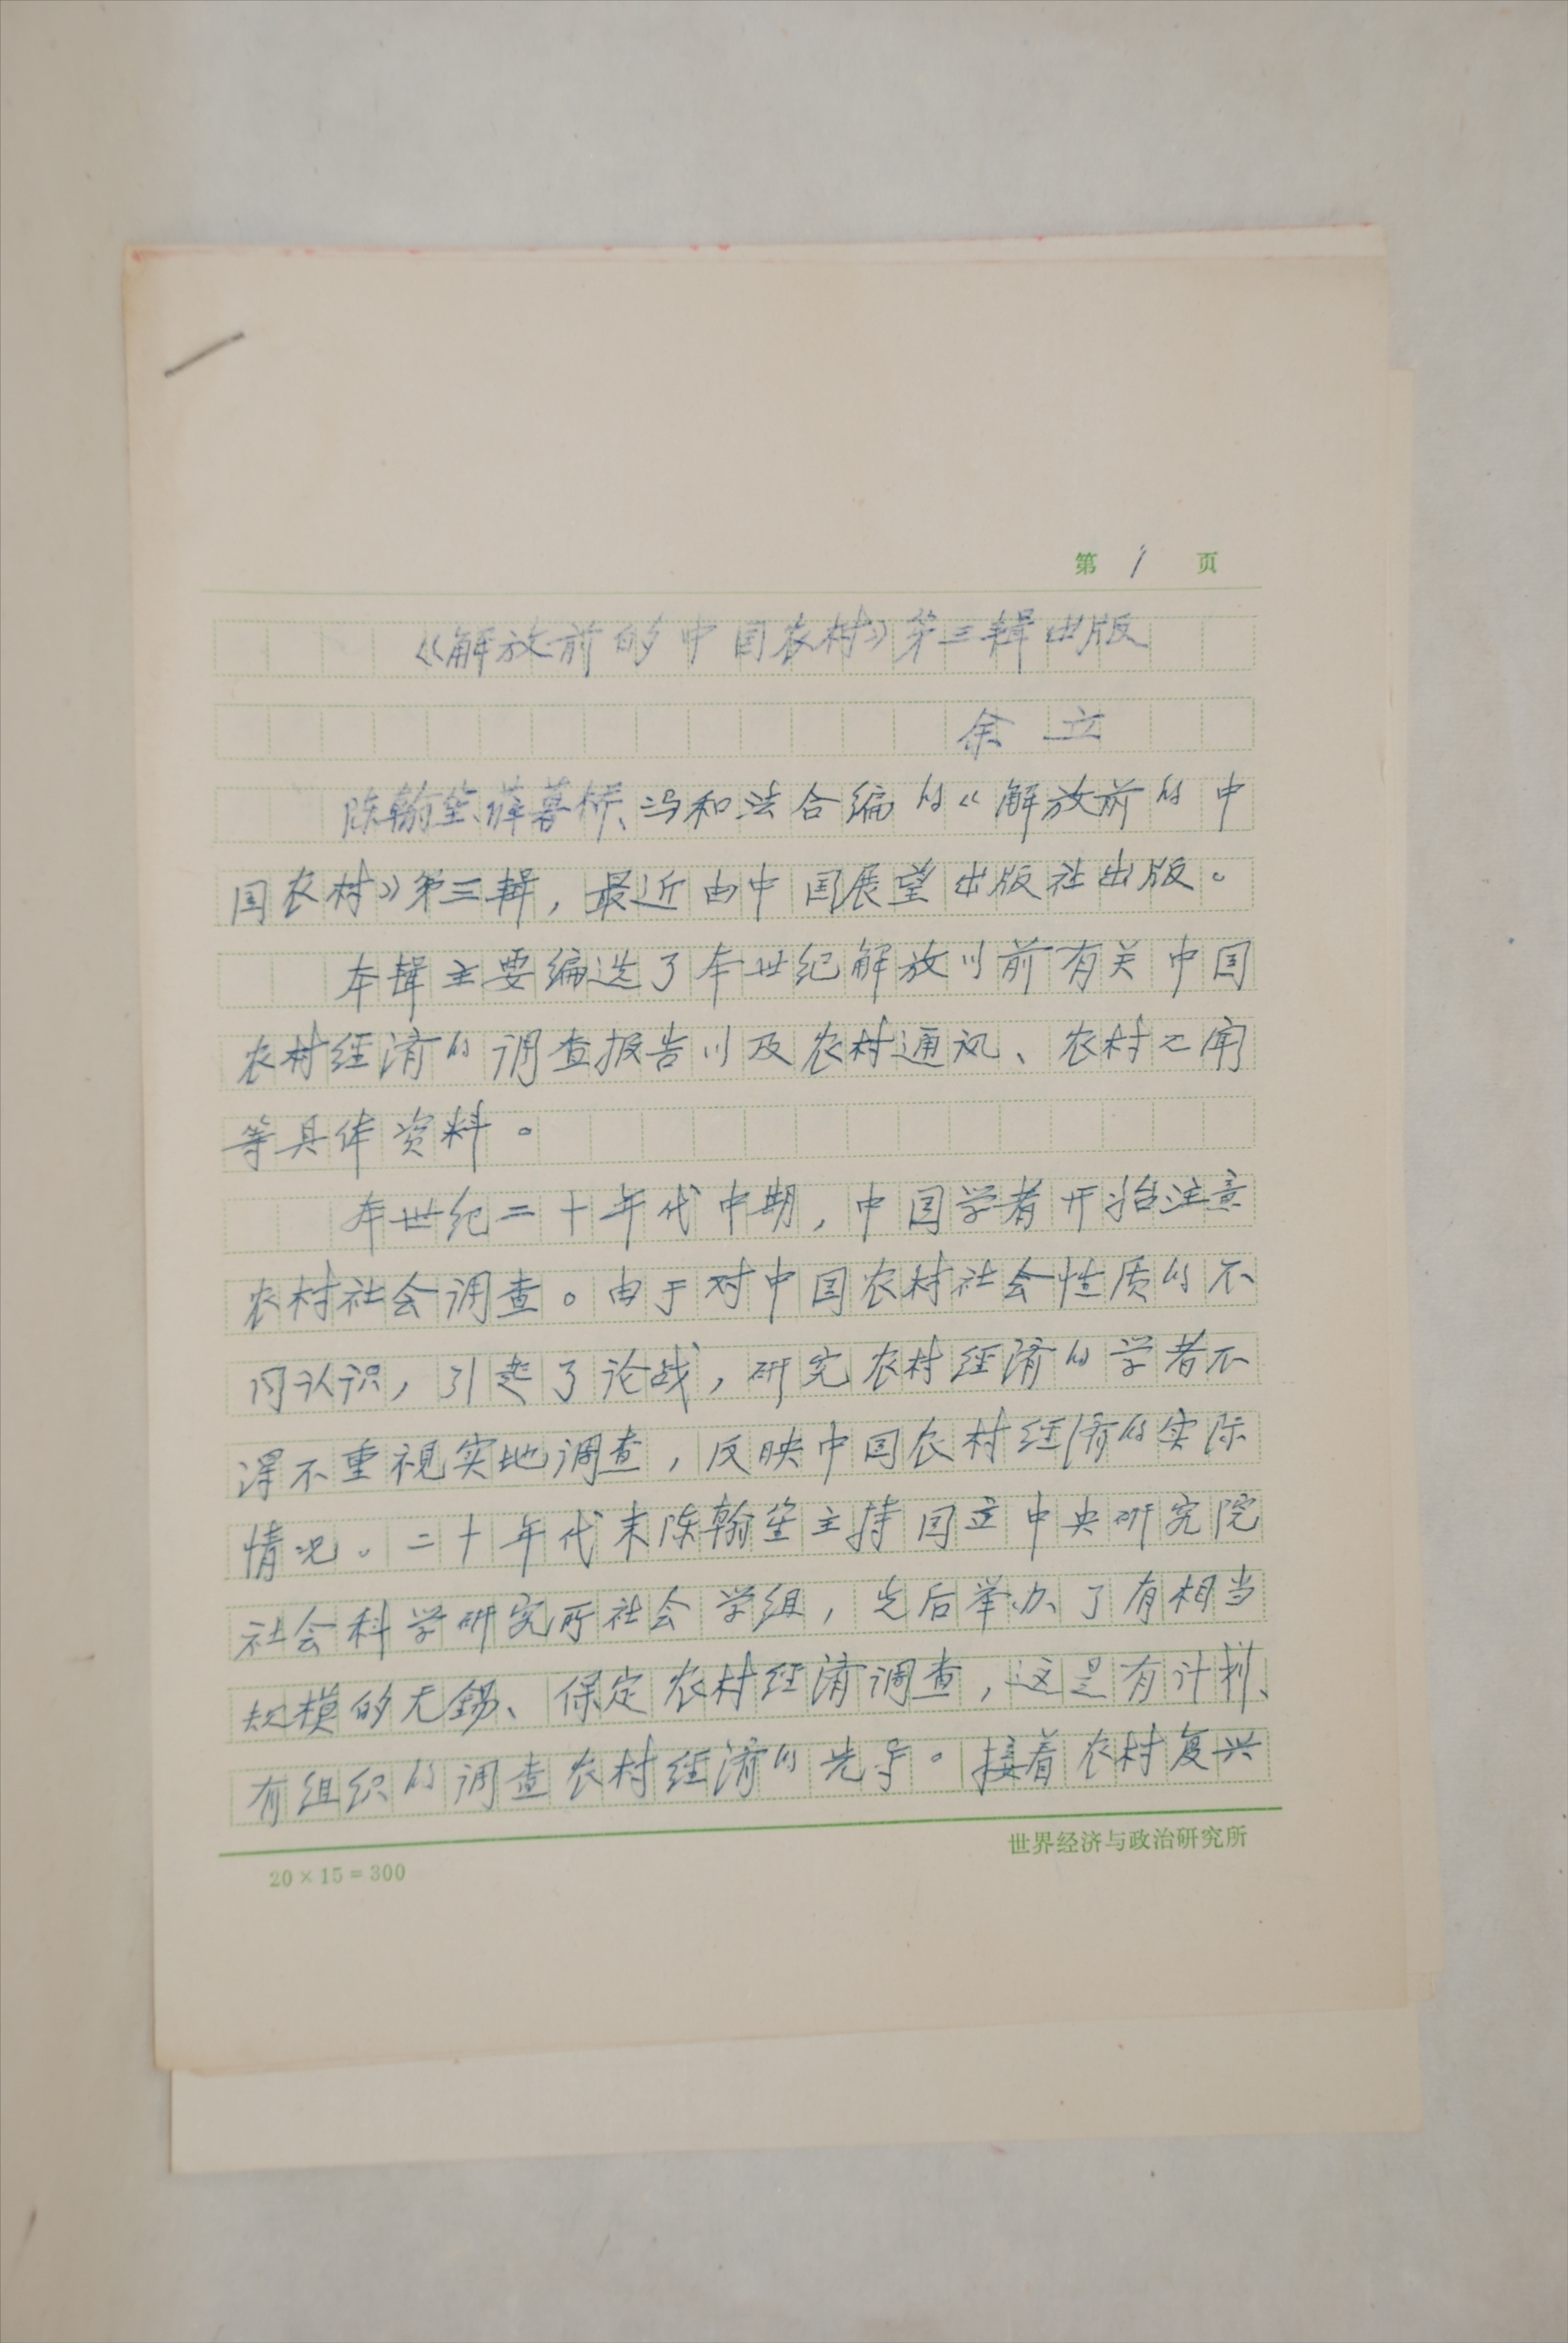 第 1 页
《解放前的中国农村》第三辑出版
余立
陈翰笙、薛暮桥、冯和法合编的《解放前的中
国农村》第三辑，最近由中国展望出版社出版。
本辑主要编选了本世纪解放以前有关中国
农村经济的调查报告以及农村通讯、农村之闻
等具体资料。
本世纪二十年代中期，中国学者开始注意
农村社会调查。由于对中国农村社会性质的不
同认识，引起了论战，研究农村经济的学者不
得不重视实地调查，反映中国农村经济的实际
情况。二十年代末陈翰笙主持国立中央研究院
社会科学研究所社会学组，先后举办了有相当
规模的无锡、保定农村经济调查，这是有计划、
有组织的调查农村经济的先导。接着农村复兴
世界经济与政治研究所
20×15=300